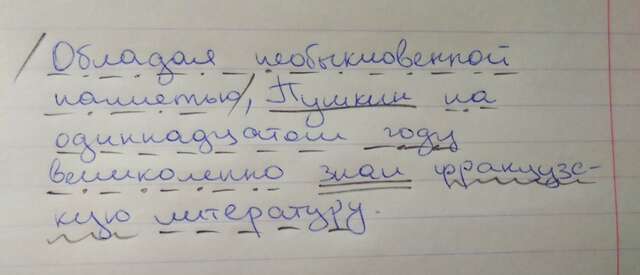 Обладая необыкновенной
памятью, Пушкин на
одиннадцатом году
великолепно знал французс-
кую литературу.